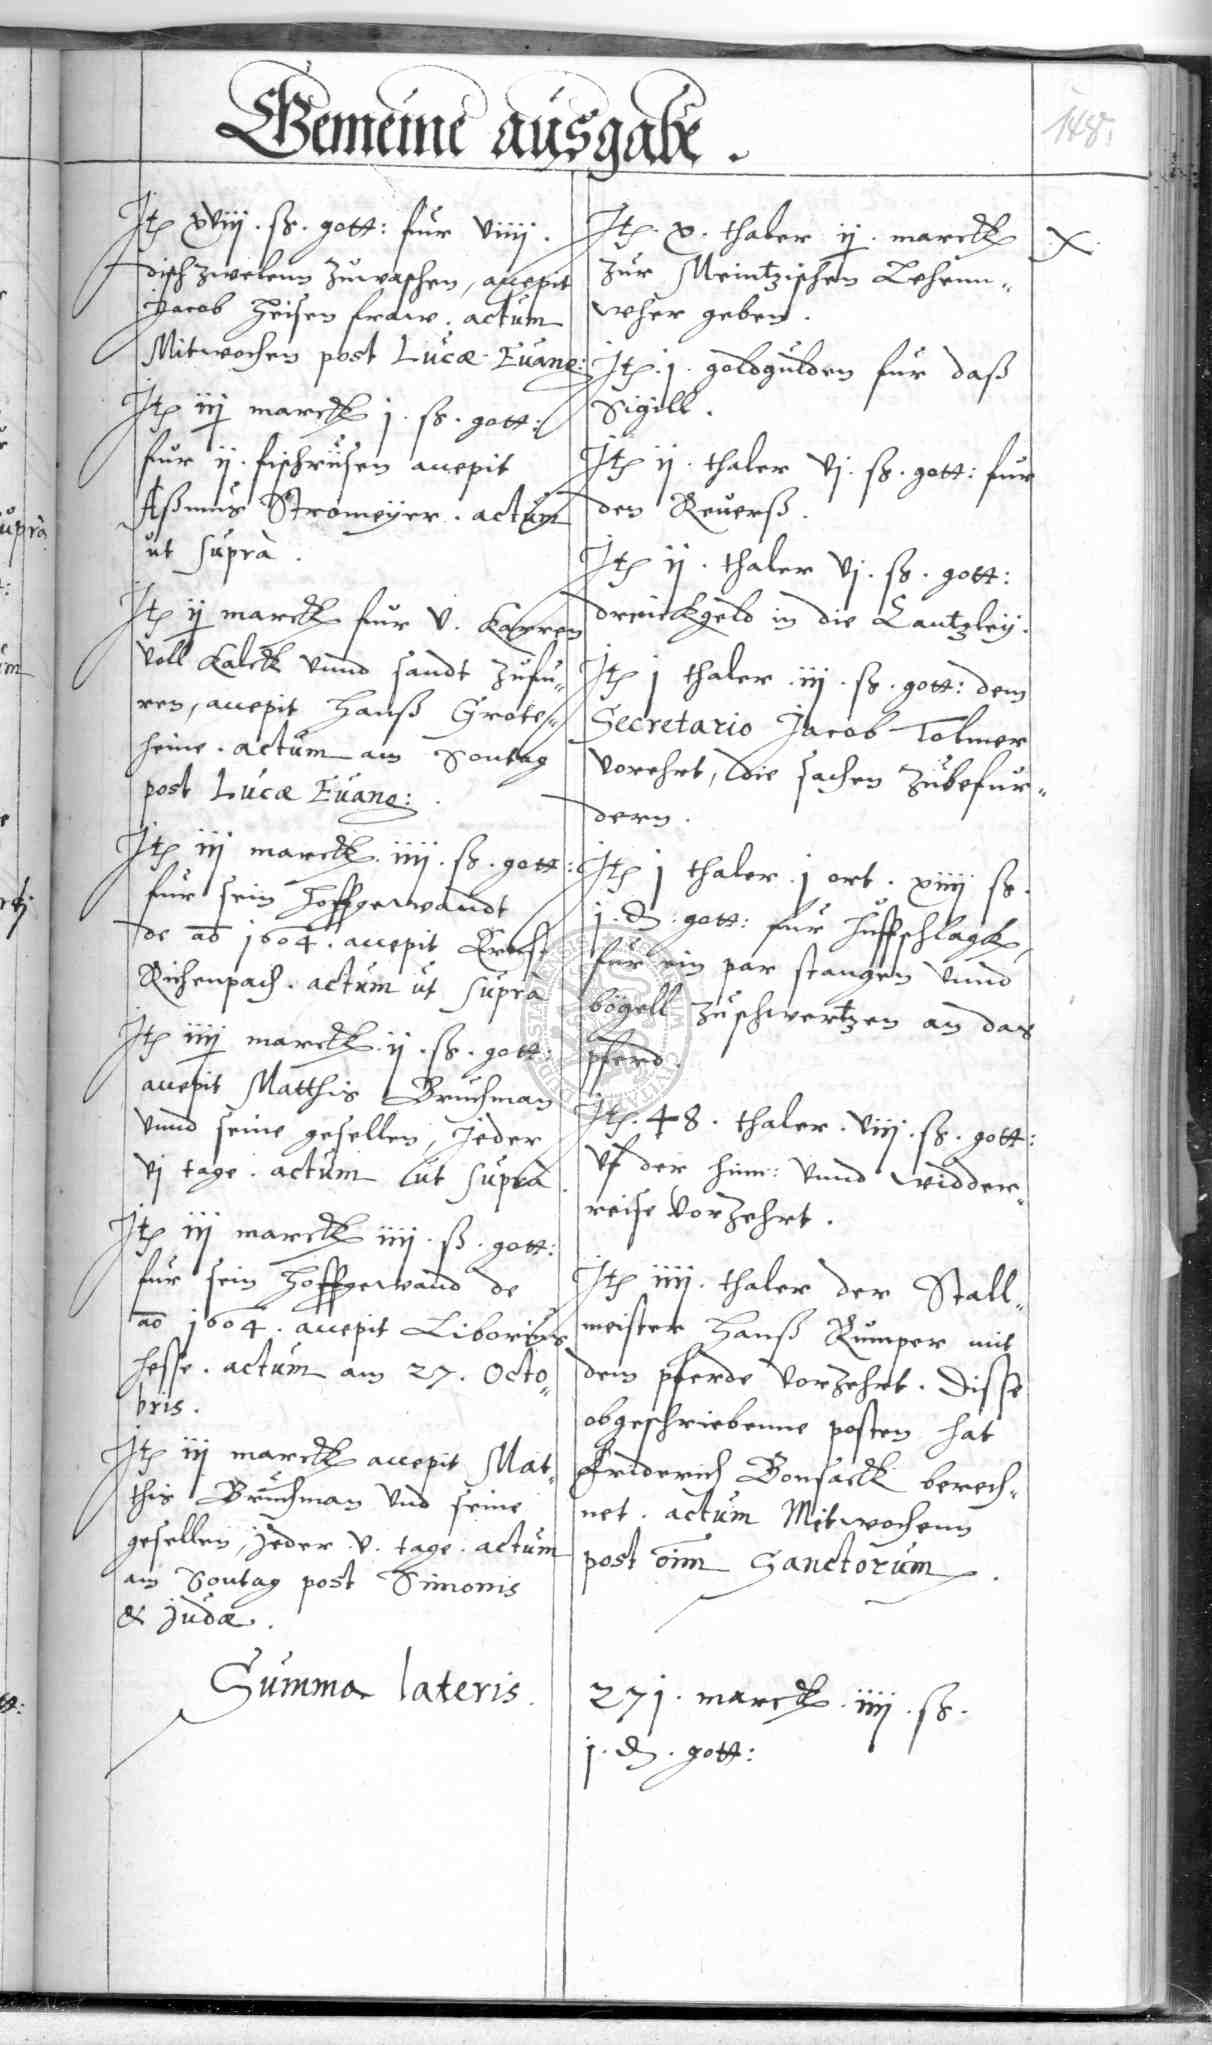 Gemeine ausgabe.
148.
Jtem xviij. ß. gott: fur viiij.
disch zwelenn zuwaschen, accepit
Jacob Heisen fraw. actum
Mitwochen post Lucæ Euang:
Jtem iij marck j. ß. gott:
fur ij. fischrüsen accepit
Aßmus Stromeyer. actum
ut suprà.
Jtem ij marck fur v. karren
voll kalck vnnd sandt zufu„
ren, accepit Hanß Grote„
heine. actum am Sontag
post Lucæ Euang:.
Jtem iij marck. iiij. ß. gott:
fur sein Hoffgewandt
de ao 1604. accepit Ernst
Richenpach. actum ut suprà
Jtem iiij marck. ij. ß. gott:
accepit Matthis Bruchman
vnnd seine gesellen, Jeder
vj tage. actum ut suprà.
Jtem iij marck iiij. ß. gott:
fur sein Hoffgewand de
ao 1604. accepit Liborius
Hesse. actum am 27. Octo„
bris.
Jtem iij marck accepit Mat„
this Bruchman vnd seine
gesellen, Jeder v. tage. actum
am Sontag post Simonis
& Judæ.
Summa lateris.
Jtem. x. thaler ij. marck
zur Meintzischen Lehenn„
wher geben.
X
Jtem. j. goldgulden fur daß
Sigill.
Jtem ij. thaler vj. ß. gott: fur
den Reuerß.
Jtem ij. thaler vj. ß. gott:
drinckgeld in die Cantzley.
Jtem j thaler. iij. ß. gott: dem
Secretario Jacob Tolmer
vorehrt, die sachen zubefur„
dern.
Jtem j thaler. j ort. xiiij ß.
j. d. gott: fur Huffschlagk,
fur ein par stangen vnnd
bögell zuschwertzen an das
pferd.
Jtem. 48. thaler. viij. ß. gott:
vf der hinn: vnnd widder„
reise vorzehrt.
Jtem iiij. thaler der Stall„
meister Hanß Rumper mit
dem pferde vorzehrt. Disse
obgeschriebenne posten hat
Friderich Bonsack berech„
net. actum Mitwochenn
post oim Sanctorum.
271. marck. iiij. ß.
j. d. gott: